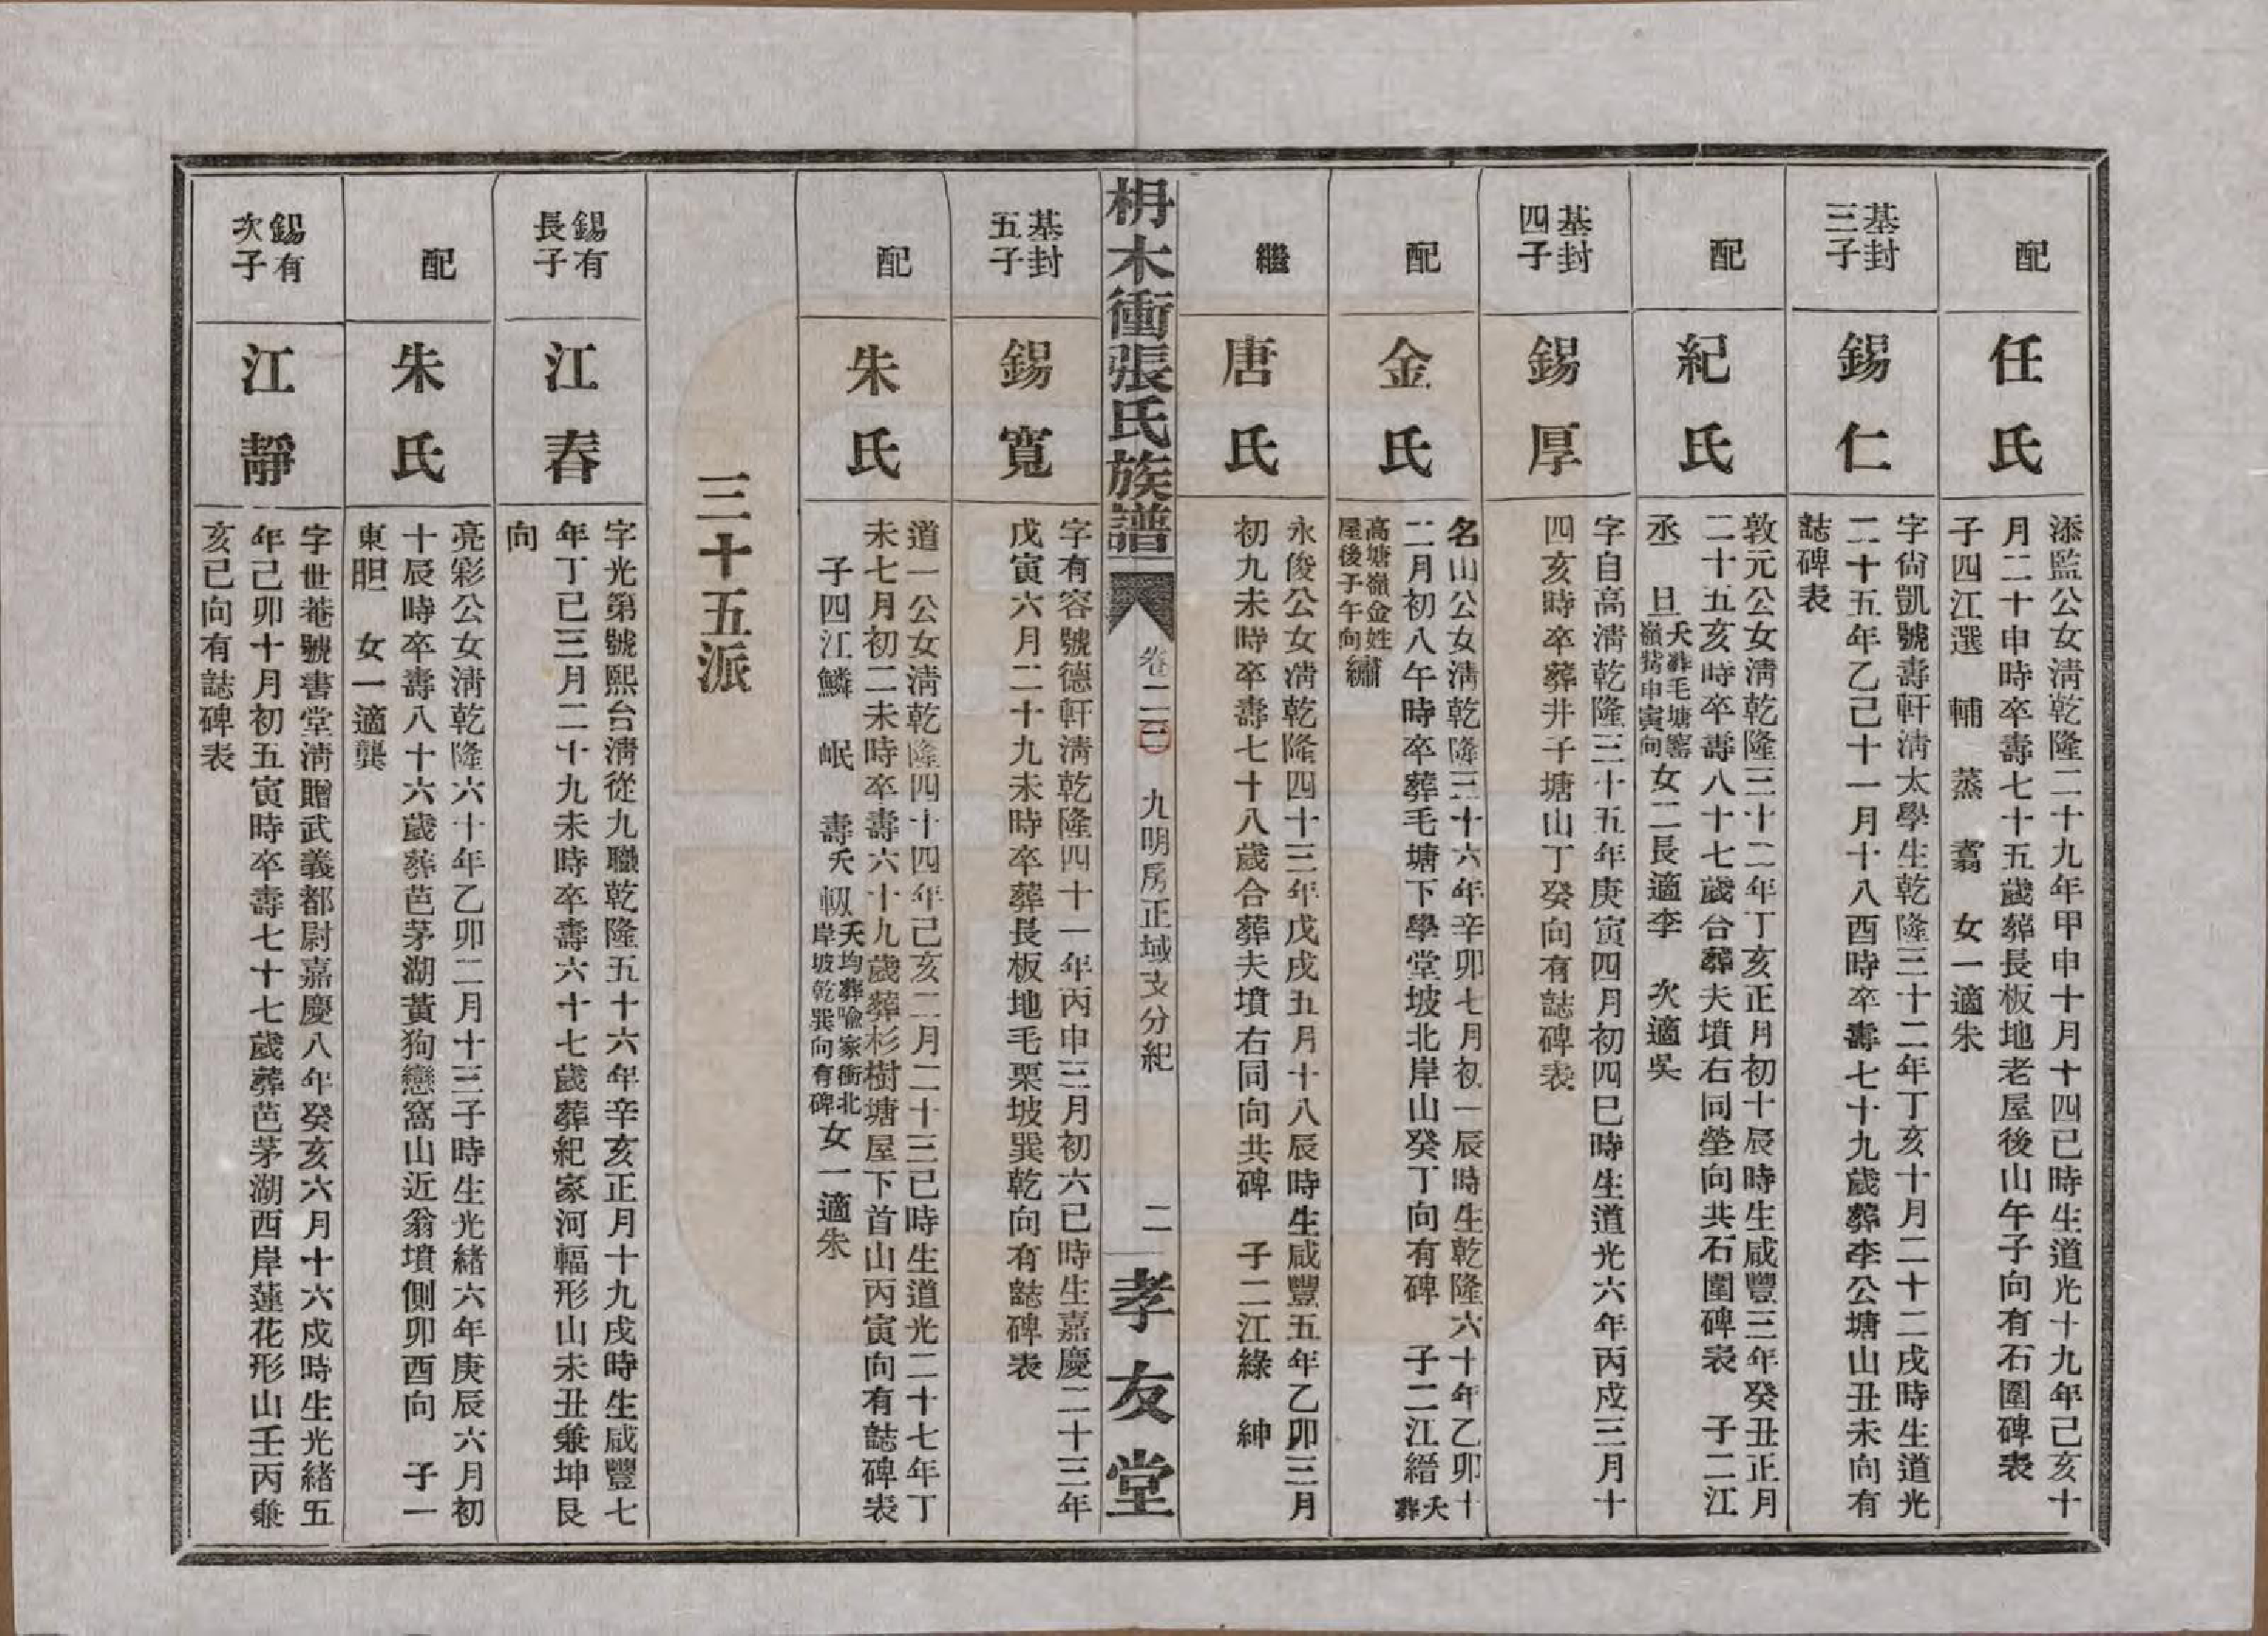 配
任氏
添監公女淸乾隆二十九年甲申十月十四巳時生道光十九年己亥十
月二十申時卒壽七十五歲葬長板地老屋後山午子向有石圍碑表
子四江選　輔　蒸　翥　女一適朱
基封
三子
錫仁
字尙凱號壽軒淸太學生乾隆三十二年丁亥十月二十二戌時生道光
二十五年乙巳十一月十八酉時卒壽七十九歲葬李公塘山丑未向有
誌碑表
配
紀氏
敦元公女淸乾隆三十二年丁亥正月初十辰時生咸豐三年癸丑正月
二十五亥時卒壽八十七歲合葬夫墳右同塋向共石圍碑表　子二江
丞　旦
夭葬毛塘窰
嶺背申寅向
女二長適李　次適吳
基封
四子
錫厚
字自高淸乾隆三十五年庚寅四月初四巳時生道光六年丙戌三月十
四亥時卒葬井子塘山丁癸向有誌碑表
配
金氏
名山公女淸乾隆三十六年辛卯七月初一辰時生乾隆六十年乙卯十
二月初八午時卒葬毛塘下學堂坡北岸山癸丁向有碑　子二江縉
夭
葬
高塘嶺金姓
屋後子午向
繡
繼
唐氏
永俊公女淸乾隆四十三年戊戌五月十八辰時生咸豐五年乙卯三月
初九未時卒壽七十八歲合葬夫墳右同向共碑　子二江綠　紳
枬木衝張氏族譜
卷二三
九明房正域支分紀
二
孝友堂
基封
五子
錫寬
字有容號德軒淸乾隆四十一年丙申三月初六巳時生嘉慶二十三年
戊寅六月二十九未時卒葬長板地毛栗坡巽乾向有誌碑表
配
朱氏
道一公女淸乾隆四十四年己亥二月二十三巳時生道光二十七年丁
未七月初二未時卒壽六十九歲葬杉樹塘屋下首山丙寅向有誌碑表
子四江鱗　岷　壽
夭
夭均葬喩家衝北
岸坡乾巽向有碑
女一適朱
三十五派
錫有
長子
江春
字光第號熙台淸從九職乾隆五十六年辛亥正月十九戌時生咸豐七
年丁巳三月二十九未時卒壽六十七歲葬紀家河輻形山未丑兼坤艮
向
配
朱氏
亮彩公女淸乾隆六十年乙卯二月十三子時生光緖六年庚辰六月初
十辰時卒壽八十六歲葬芭茅湖黃狗戀窩山近翁墳側卯酉向　子一
東胆　女一適龔
錫有
次子
江靜
字世菴號書堂淸贈武義都尉嘉慶八年癸亥六月十六戌時生光緖五
年己卯十月初五寅時卒壽七十七歲葬芭茅湖西岸蓮花形山壬丙兼
亥巳向有誌碑表